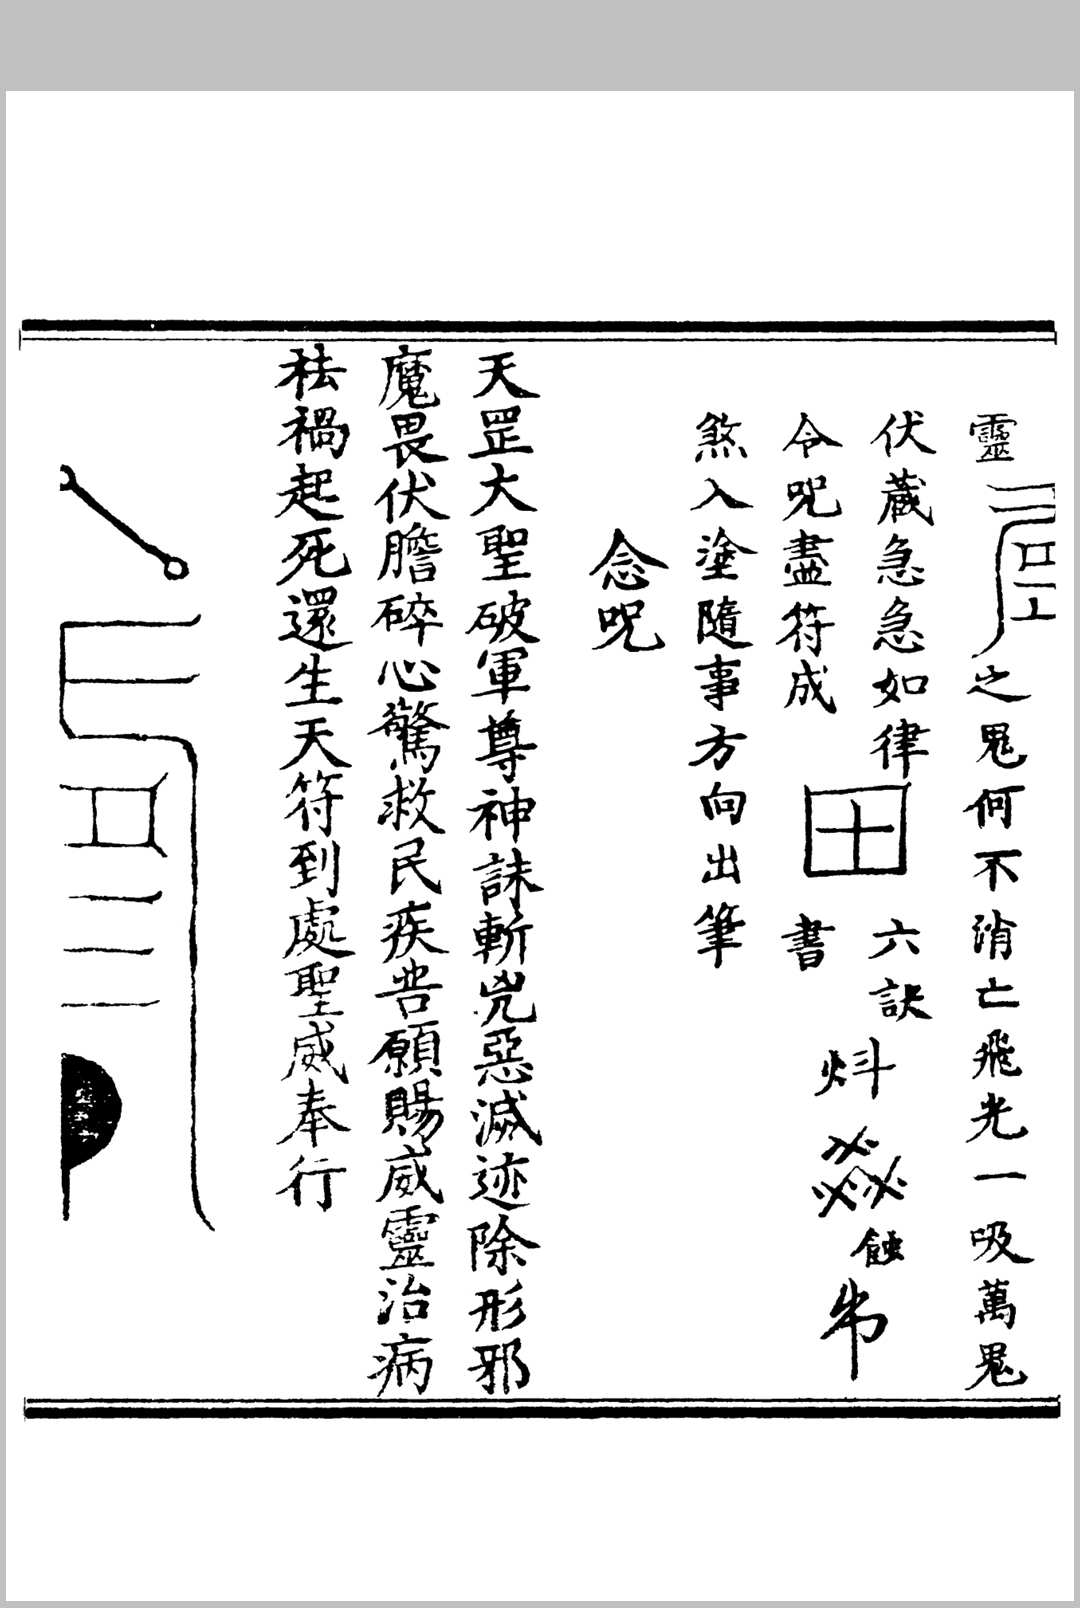 靈
之鬼何不消亡飛光一吸萬鬼
伏藏急急如律
令咒盡符成
田
六訣
書
炓
蝕
煞入塗隨事方向出筆
念咒
天罡大聖破軍尊神誅斬兇惡滅迹除形邪
魔畏伏膽碎心驚救民疾苦願賜威靈治病
祛禍起死還生天符到處聖威奉行